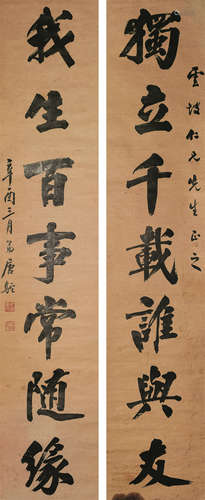 雲坡仁兄先生正之
獨立千載誰與友
我生百事常随緣
辛酉三月
唐駝